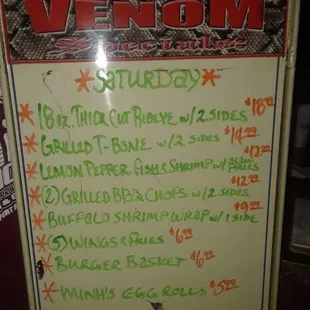 VENOM
Specials
SATURDAY
18 oz. THICK CUT RIBEYE w/ 2 SIDES $18.99
GRILLED T-BONE w/ 2 SIDES $14.99
LEMON PEPPER FISH & SHRIMP w/ FRIES $12.99
(2) GRILLED BBQ CHOPS w/ 2 SIDES $12.99
BUFFALO SHRIMP WRAP w/ 1 SIDE $9.99
(5) WINGS & FRIES $6.99
BURGER BASKET $6.99
MINH'S EGG ROLLS $5.99